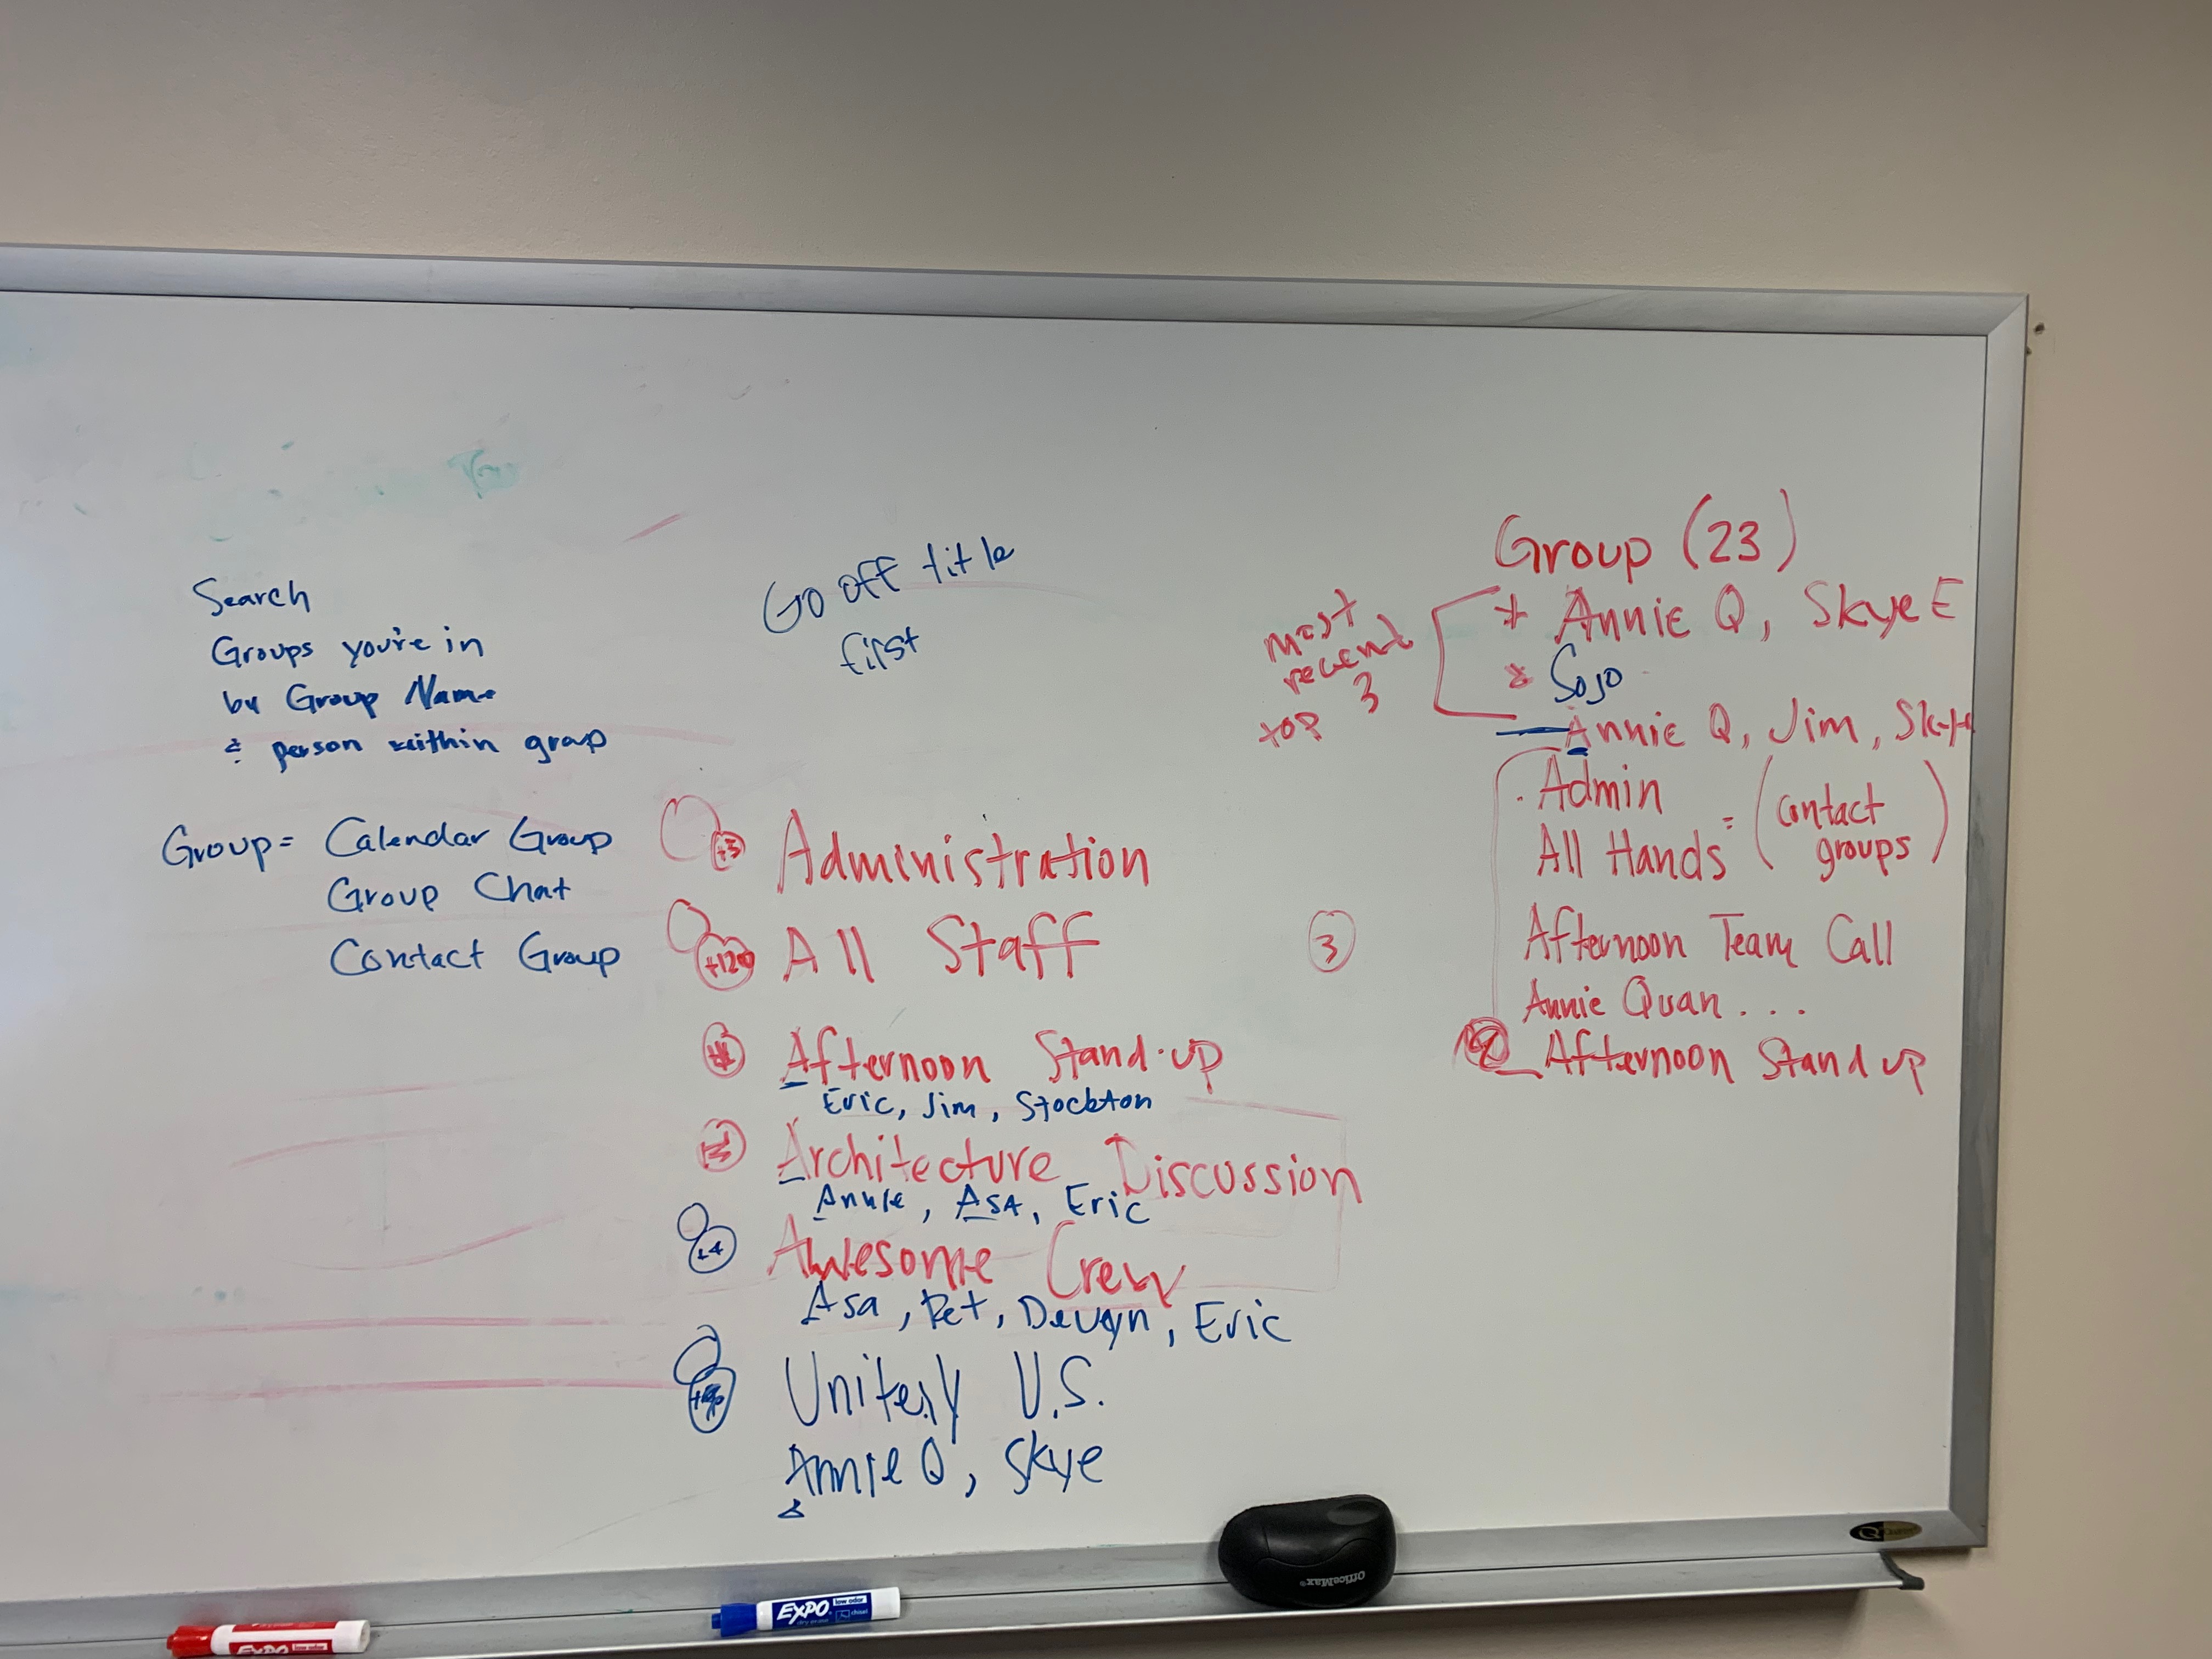 Search
Groups you're in
by Group Name
& person within group
Group = Calendar Group
Group Chat
Contact Group
Go off title
first
+3 Administration
+120 All Staff
Afternoon Stand-up
Eric, Jim, Stockton
Architecture Discussion
Annie, Asa, Eric
+4 Awesome Crew
Asa, Pet, Devyn, Eric
Unitesly U.S.
Annie Q, Skye
most
recent
top 3
Group (23)
Annie Q, Skye E
Sojo
Annie Q, Jim, Skye
Admin
All Hands = (Contact
groups)
3
Afternoon Team Call
Annie Quan...
Afternoon Stand up
OfficeMax
EXPO low odor
EXPO